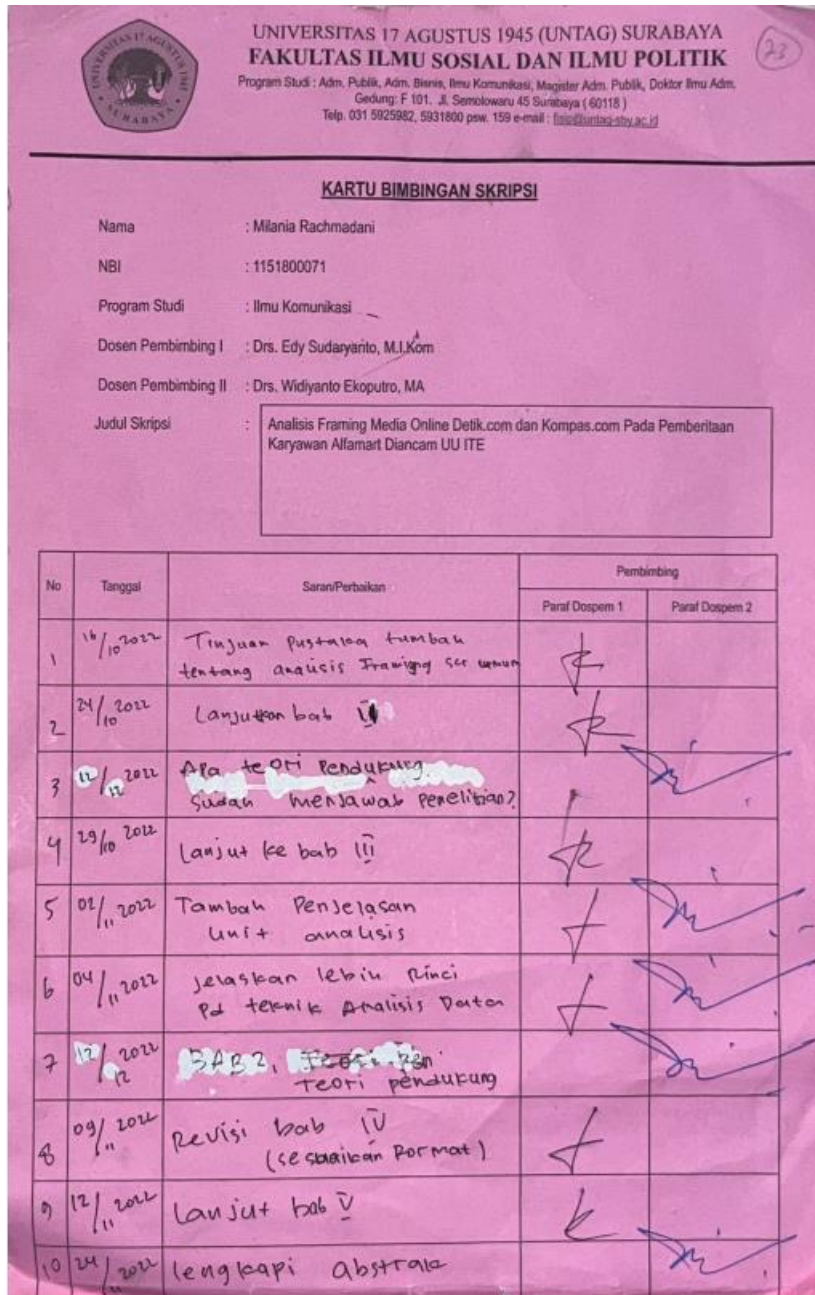 UNIVERSITAS 17 AGUSTUS 1945
SURABAYA
UNIVERSITAS 17 AGUSTUS 1945 (UNTAG) SURABAYA
FAKULTAS ILMU SOSIAL DAN ILMU POLITIK
Program Studi : Adm. Publik, Adm. Bisnis, Ilmu Komunikasi, Magister Adm. Publik, Doktor Ilmu Adm.
Gedung: F 101. Jl. Semolowaru 45 Surabaya ( 60118 )
Telp. 031 5925982, 5931800 psw. 159 e-mail : fisip@untag-sby.ac.id
23
KARTU BIMBINGAN SKRIPSI
Nama : Milania Rachmadani
NBI : 1151800071
Program Studi : Ilmu Komunikasi
Dosen Pembimbing I : Drs. Edy Sudaryanto, M.I.Kom
Dosen Pembimbing II : Drs. Widiyanto Ekoputro, MA
Judul Skripsi : Analisis Framing Media Online Detik.com dan Kompas.com Pada Pemberitaan
Karyawan Alfamart Diancam UU ITE
No Tanggal Saran/Perbaikan Pembimbing
Paraf Dospem 1 Paraf Dospem 2
1 16/10 2022 Tinjuan Pustaka tumbah
tentang analisis Framigng scr umum
2 24/10 2022 Lanjutkan bab II
3 12/12 2022 Apa teori Pendukung
sudah menjawab penelitian?
4 29/10 2022 Lanjut ke bab III
5 02/11 2022 Tambah Penjelasan
unit analisis
6 04/11 2022 jelaskan lebih Rinci
Pd teknik Analisis Data
7 12/12 2022 BAB 2,
teori pendukung
8 09/11 2022 Revisi bab IV
(sesuaikan Format)
9 12/11 2022 Lanjut bab V
10 24/ 2022 lengkapi abstrak